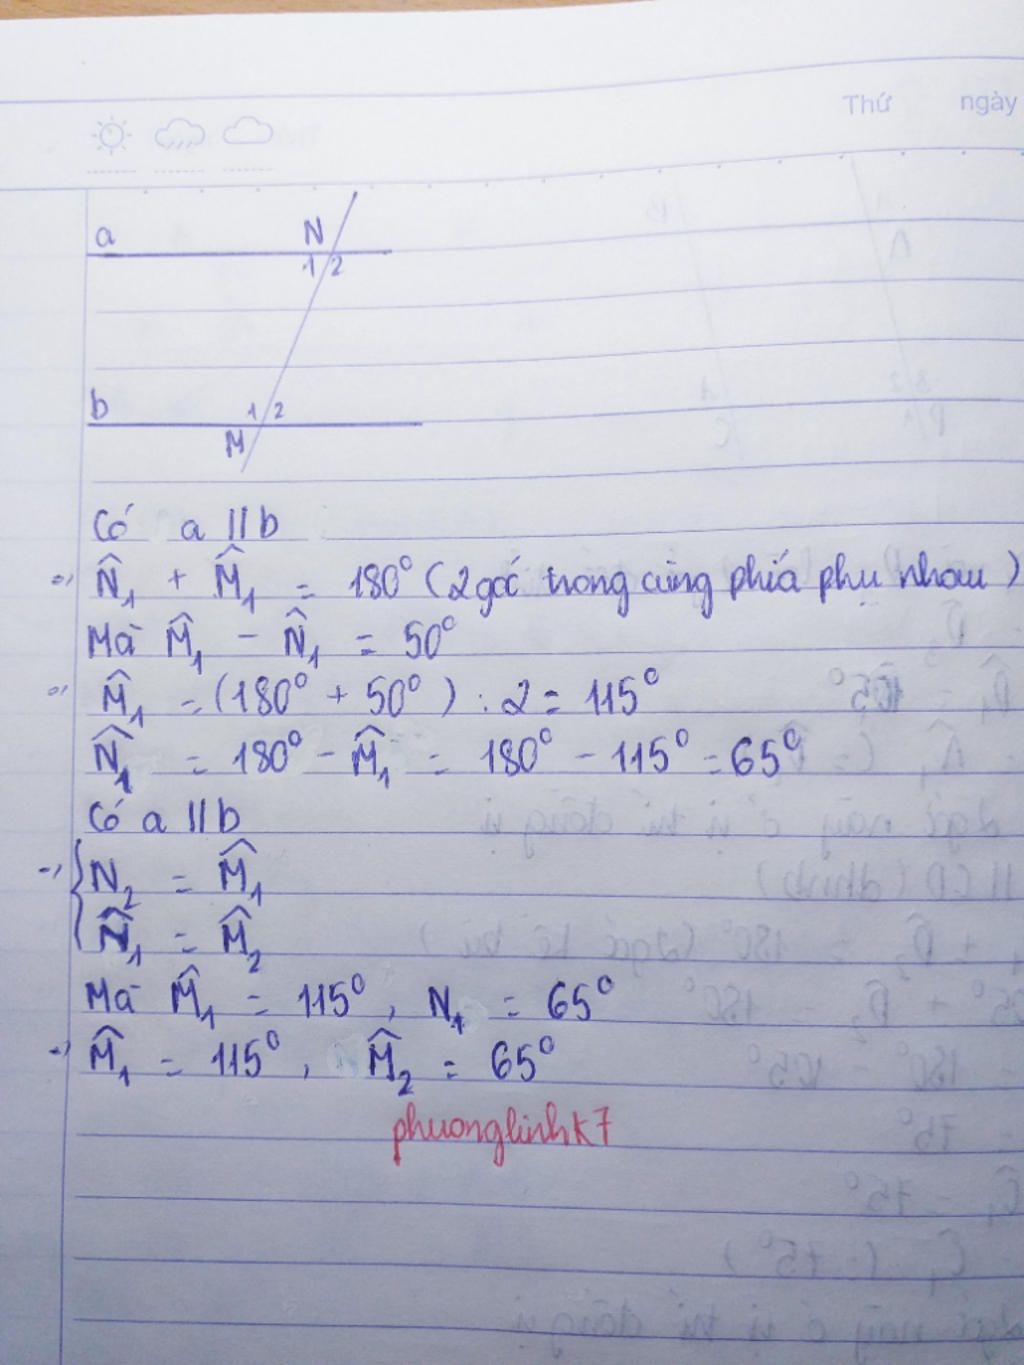 Thứ ngày
a N
1 2
b 1 2
M
Có a // b
=> N̂₁ + M̂₁ = 180° (2 góc trong cùng phía phụ nhau)
Mà M̂₁ - N̂₁ = 50°
=> M̂₁ = (180° + 50°) : 2 = 115°
N̂₁ = 180° - M̂₁ = 180° - 115° = 65°
Có a // b
=> { N₂ = M̂₁
N̂₁ = M̂₂
Mà M̂₁ = 115°, N₁ = 65°
=> M̂₁ = 115°, M̂₂ = 65°
phuonglinhk7